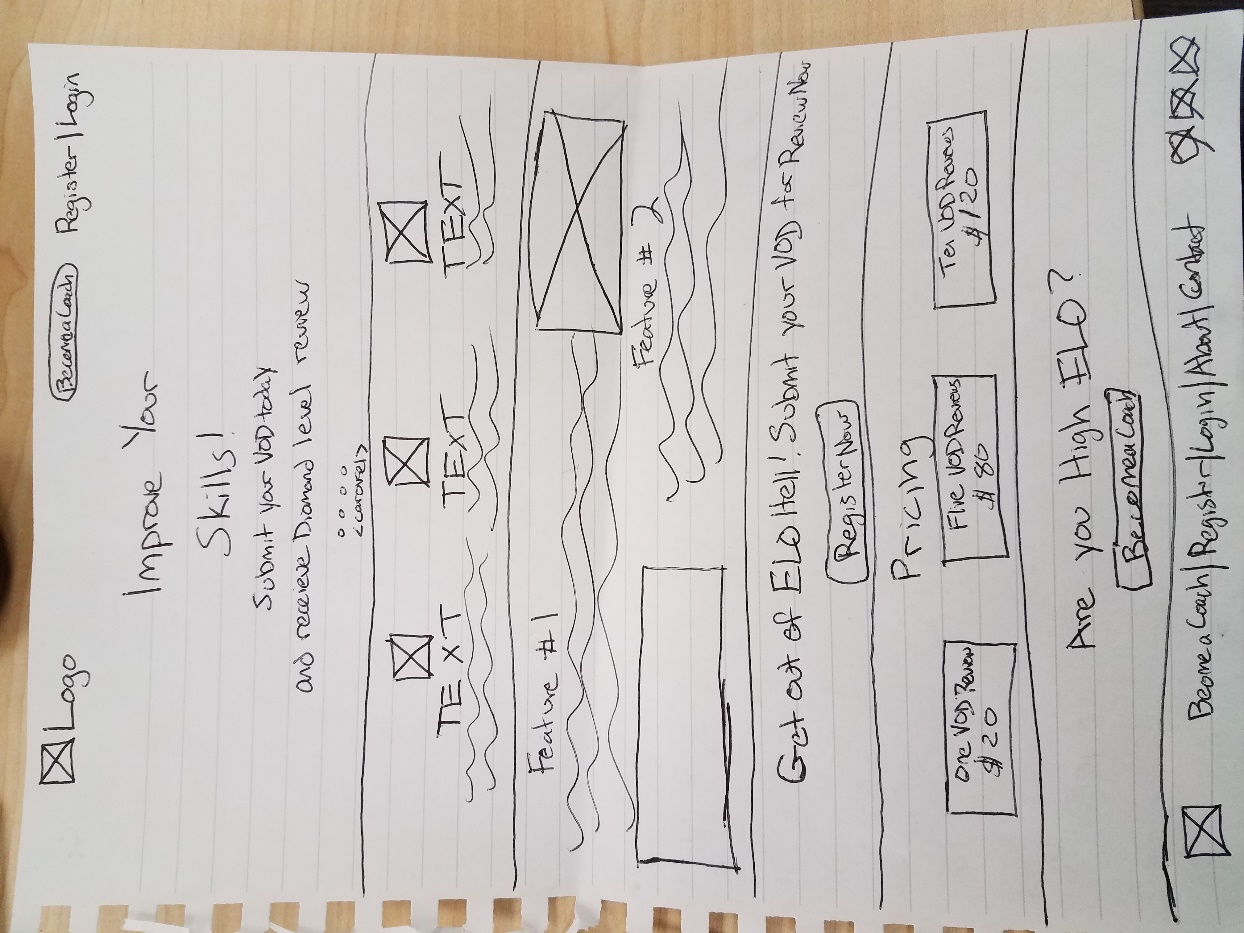 Logo
Become a Coach
Register | Login
Improve Your
Skills!
Submit your VOD today
and receieve Diamond level review
<carousel>
TEXT
TEXT
TEXT
Feature #1
Feature #2
Get out of ELO Hell! Submit your VOD for Review Now
Register Now
Pricing
One VOD Review
$20
Five VOD Reviews
$80
Ten VOD Reviews
$120
Are you High ELO?
Become a Coach
Become a Coach | Register | Login | About | Contact